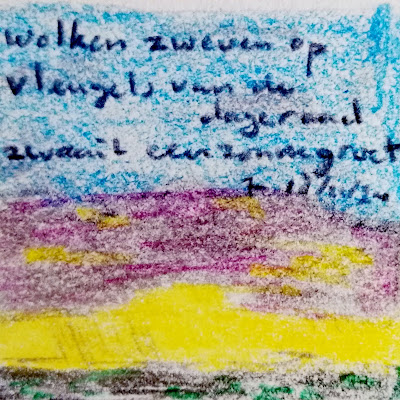 wolken zweven op
vleugels van de
dageraad
zwaait een zonnegroet